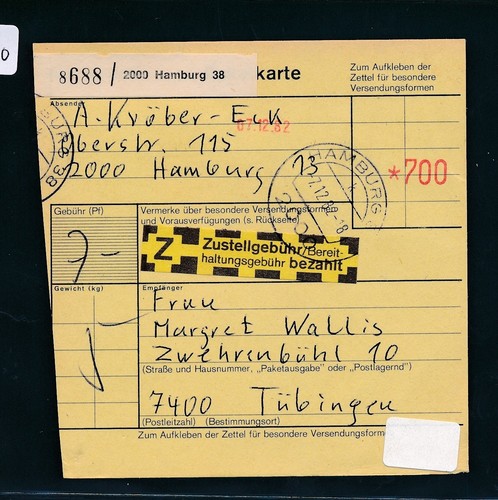 0
8688 / 2000 Hamburg 38
karte
Zum Aufkleben der
Zettel für besondere
Versendungsformen
Absender
A. Kröber-Eck
07.12.82
Oberstr. 115
2000 Hamburg 13
HAMBURG
*700
Gebühr (Pf)
7-
Vermerke über besondere Versendungsformen
und Vorausverfügungen (s. Rückseite)
Z
Zustellgebühr/Bereit-
haltungsgebühr bezahlt
Gewicht (kg)
Empfänger
Frau
Margret Wallis
Zwehrenbühl 10
(Straße und Hausnummer, „Paketausgabe" oder „Postlagernd")
7400 Tübingen
(Postleitzahl) (Bestimmungsort)
Zum Aufkleben der Zettel für besondere Versendungsfor